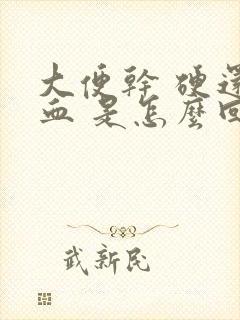 大便幹 硬還
血 是怎麼回
武新民